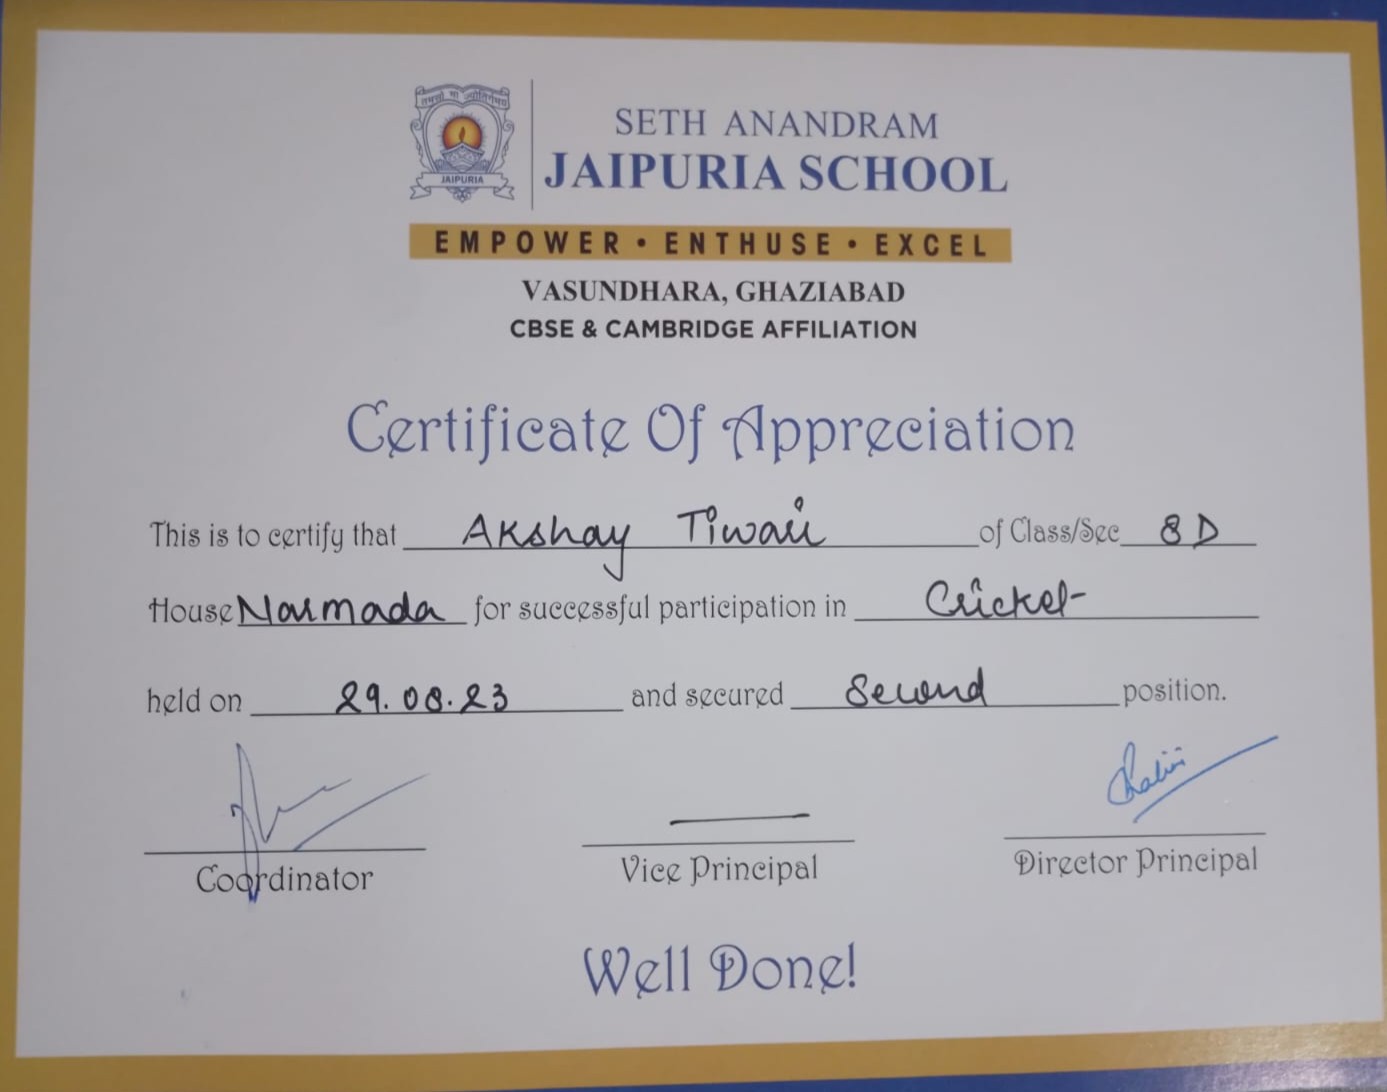 तमसो मा ज्योतिर्गमय
JAIPURIA
SETH ANANDRAM
JAIPURIA SCHOOL
EMPOWER • ENTHUSE • EXCEL
VASUNDHARA, GHAZIABAD
CBSE & CAMBRIDGE AFFILIATION
Certificate Of Appreciation
This is to certify that Akshay Tiwari of Class/Sec 8 D
House Narmada for successful participation in Cricket
held on 29.08.23 and secured Second position.
Coordinator
Vice Principal
Director Principal
Well Done!